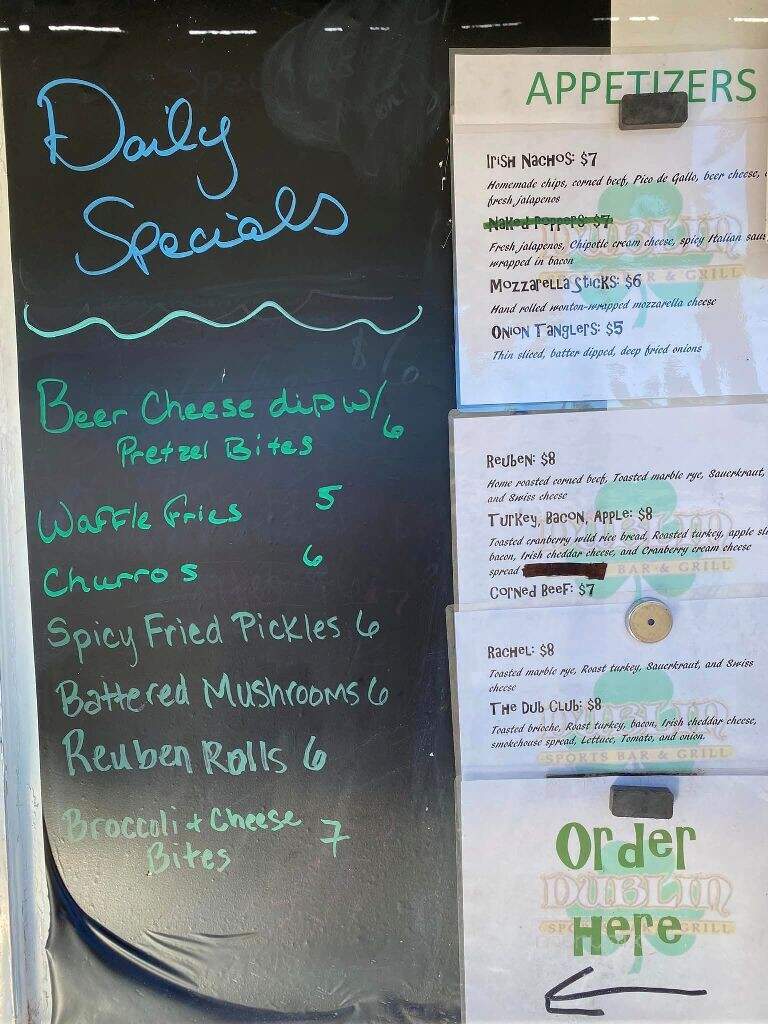 Daily
Specials
Beer Cheese dip w/ 6
Pretzel Bites
Waffle Fries 5
Churros 6
Spicy Fried Pickles 6
Battered Mushrooms 6
Reuben Rolls 6
Broccoli + Cheese
Bites 7
APPETIZERS
Irish Nachos: $7
Homemade chips, corned beef, Pico de Gallo, beer cheese,
fresh jalapenos
Naked Poppers: $7
Fresh jalapenos, Chipotle cream cheese, spicy Italian
wrapped in bacon
Mozzarella Sticks: $6
Hand rolled wonton-wrapped mozzarella cheese
Onion Tanglers: $5
Thin sliced, batter dipped, deep fried onions
DUBLIN
BAR & GRILL
Reuben: $8
Home roasted corned beef, Toasted marble rye, Sauerkraut,
and Swiss cheese
Turkey, Bacon, Apple: $8
Toasted cranberry wild rice bread, Roasted turkey, apple
bacon, Irish cheddar cheese, and Cranberry cream cheese
spread
Corned Beef: $7
DUBLIN
BAR & GRILL
Rachel: $8
Toasted marble rye, Roast turkey, Sauerkraut, and Swiss
cheese
The Dub Club: $8
Toasted brioche, Roast turkey, bacon, Irish cheddar cheese,
smokehouse spread, Lettuce, Tomato, and onion.
DUBLIN
SPORTS BAR & GRILL
Order
DUBLIN
Here
GRILL